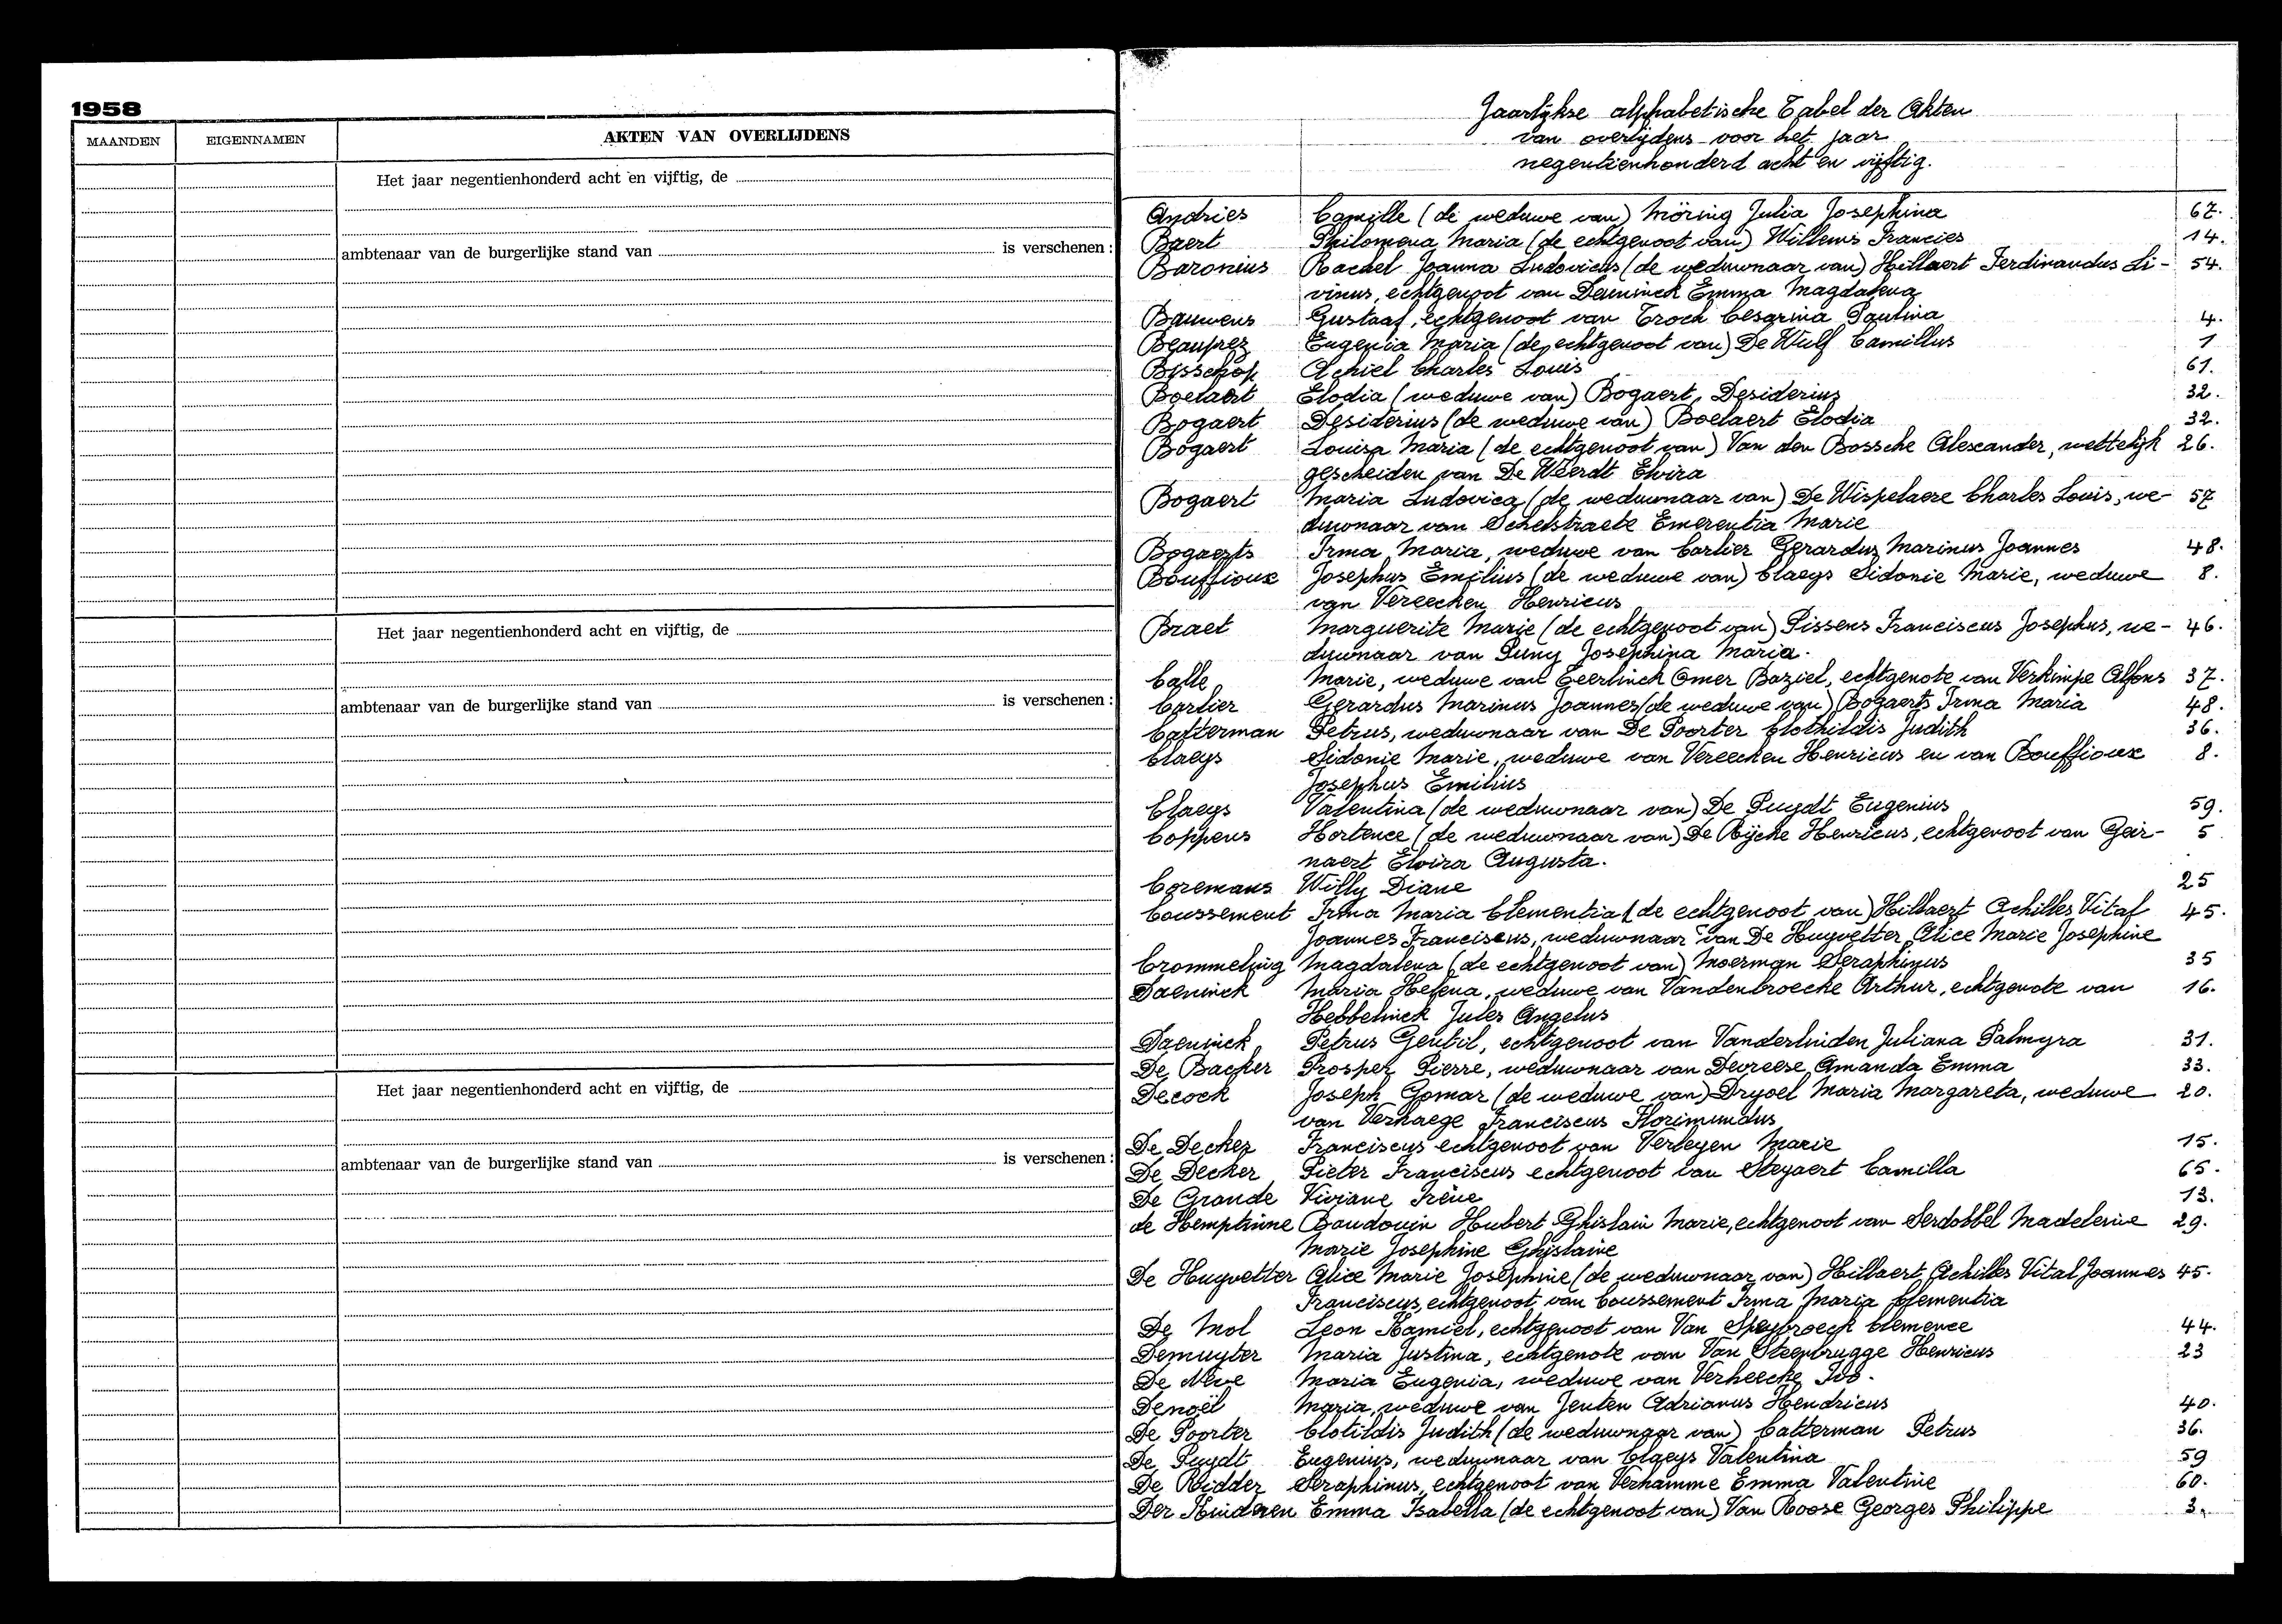 1958
MAANDEN EIGENNAMEN AKTEN VAN OVERLIJDENS
Het jaar negentienhonderd acht en vijftig, de
ambtenaar van de burgerlijke stand van is verschenen :
Het jaar negentienhonderd acht en vijftig, de
ambtenaar van de burgerlijke stand van is verschenen :
Het jaar negentienhonderd acht en vijftig, de
ambtenaar van de burgerlijke stand van is verschenen :
Jaarlijkse alphabetische Tabel der Akten
van overlijdens voor het jaar
negentienhonderd acht en vijftig.
Andries Camille (de weduwe van) Möring Julia Josephina 67.
Baert Philomena Maria (de echtgenoot van) Willems Francies 14.
Baronius Rachel Joanna Ludovicus (de weduwnaar van) Hillaert Ferdinandus Li- 54.
vinus, echtgenoot van Daeninck Emma Magdalena
Bauwens Gustaaf, echtgenoot van Troch Cesarina Paulina 4.
Beauprez Eugenia Maria (de echtgenoot van) De Wulf Camillus 1
Bisschop Achiel Charles Louis 61.
Boelaert Elodia (weduwe van) Bogaert, Desiderius 32.
Bogaert Desiderius (de weduwe van) Boelaert Elodia 32.
Bogaert Louisa Maria (de echtgenoot van) Van den Bossche Alexander, wettelijk 26.
gescheiden van De Weerdt Elvira
Bogaert Maria Ludovica (de weduwnaar van) De Wispelaere Charles Louis, we- 57
duwnaar van Schelstraete Emerentia Marie
Bogaerts Irma Maria, weduwe van Carlier Gerardus Marinus Joannes 48.
Bouffioux Josephus Emilius (de weduwe van) Claeys Sidonie Marie, weduwe 8.
van Vereecken Henricus
Braet Marguerite Marie (de echtgenoot van) Pissens Franciscus Josephus, we- 46.
duwnaar van Puny Josephina Maria.
Calle Marie, weduwe van Geerlinck Omer Baziel, echtgenote van Verkimpe Alfons 37.
Carlier Gerardus Marinus Joannes (de weduwe van) Bogaerts Irma Maria 48.
Catterman Petrus, weduwnaar van De Poorter Clothildis Judith 36.
Claeys Sidonie Marie, weduwe van Vereecken Henricus en van Bouffioux 8.
Josephus Emilius
Claeys Valentina (de weduwnaar van) De Puydt Eugenius 59.
Coppens Hortence (de weduwnaar van) De Rijcke Henricus, echtgenoot van Geir- 5
naert Elvira Augusta.
Coremans Willy Diane 25
Coussement Irma Maria Clementia (de echtgenoot van) Hillaert Achilles Vital 45.
Joannes Franciscus, weduwnaar van De Huyvetter Alice Marie Josephine
Crommeling Magdalena (de echtgenoot van) Moerman Seraphinus 35
Daeninck Maria Helena, weduwe van Vandenbroecke Arthur, echtgenote van 16.
Hebbelinck Jules Angelus
Daeninck Petrus Gentil, echtgenoot van Vanderlinden Juliana Palmyra 31.
De Backer Prosper Pierre, weduwnaar van Devreese Amanda Emma 33.
Decock Joseph Gomar (de weduwe van) Dryoel Maria Margareta, weduwe 20.
van Verhaege Franciscus Florimundus
De Decker Franciscus echtgenoot van Verleyen Marie 15.
De Decker Pieter Franciscus echtgenoot van Steyaert Camilla 65.
De Grande Viviane Irène 13.
de Hemptinne Baudouin Hubert Ghislain Marie, echtgenoot van Serdobbel Madeleine 29.
Marie Josephine Ghislaine
De Huyvetter Alice Marie Josephine (de weduwnaar van) Hillaert Achilles Vital Joannes 45.
Franciscus, echtgenoot van Coussement Irma Maria Clementia
De Mol Leon Kamiel, echtgenoot van Van Speybroeck Clemence 44.
Demuyter Maria Justina, echtgenote van Van Steenbrugge Henricus 23
De Neve Maria Eugenia, weduwe van Verheecke Ivo.
Denoël Maria, weduwe van Jenten Adrianus Hendricus 40.
De Poorter Clotildis Judith (de weduwnaar van) Catterman Petrus 36.
De Puydt Eugenius, weduwnaar van Claeys Valentina 59
De Ridder Seraphinus, echtgenoot van Verhamme Emma Valentine 60.
Der Kinderen Emma Isabella (de echtgenoot van) Van Roose Georges Philippe 3.